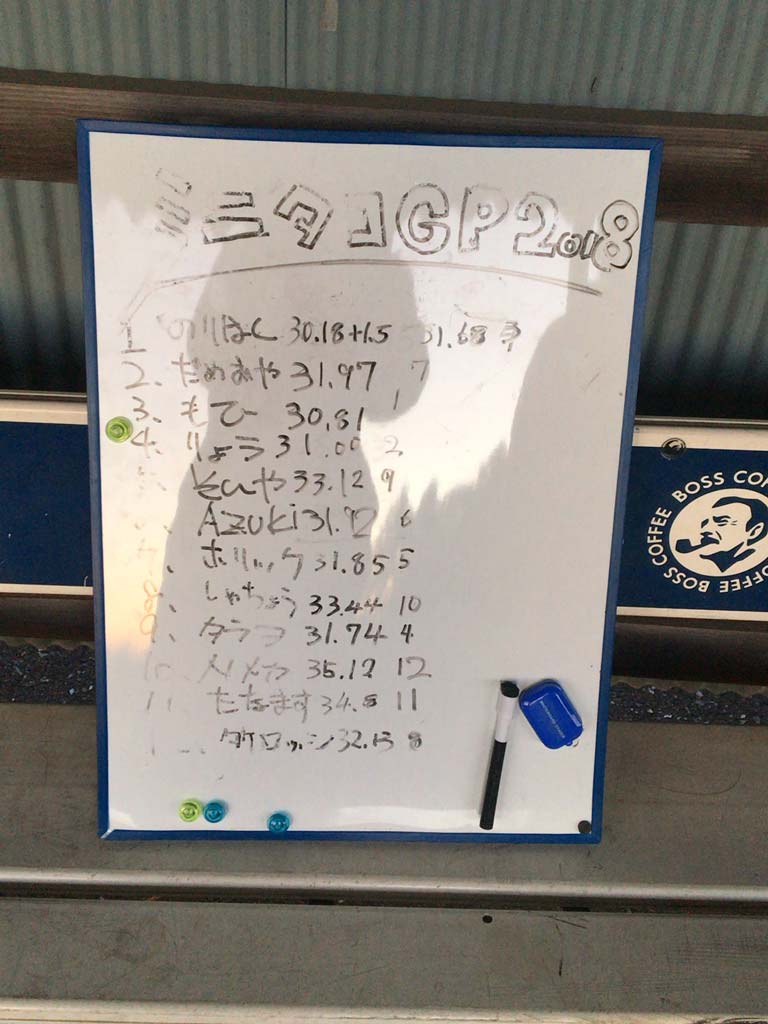 ミニタコGP2018
1 のりほし 30.18+1.5 31.68 3
2、だめおや 31.97 7
3、もてひ 30.81 1
4、りょう 31.00 2
そいや 33.12 9
Azuki 31.92 6
ホリック 31.85 5
しゃちょう 33.44 10
9、タラヲ 31.74 4
35.12 12
11、たなます 34. 11
タケロッシ 32.13 8
BOSS COFFEE BOSS COFFEE